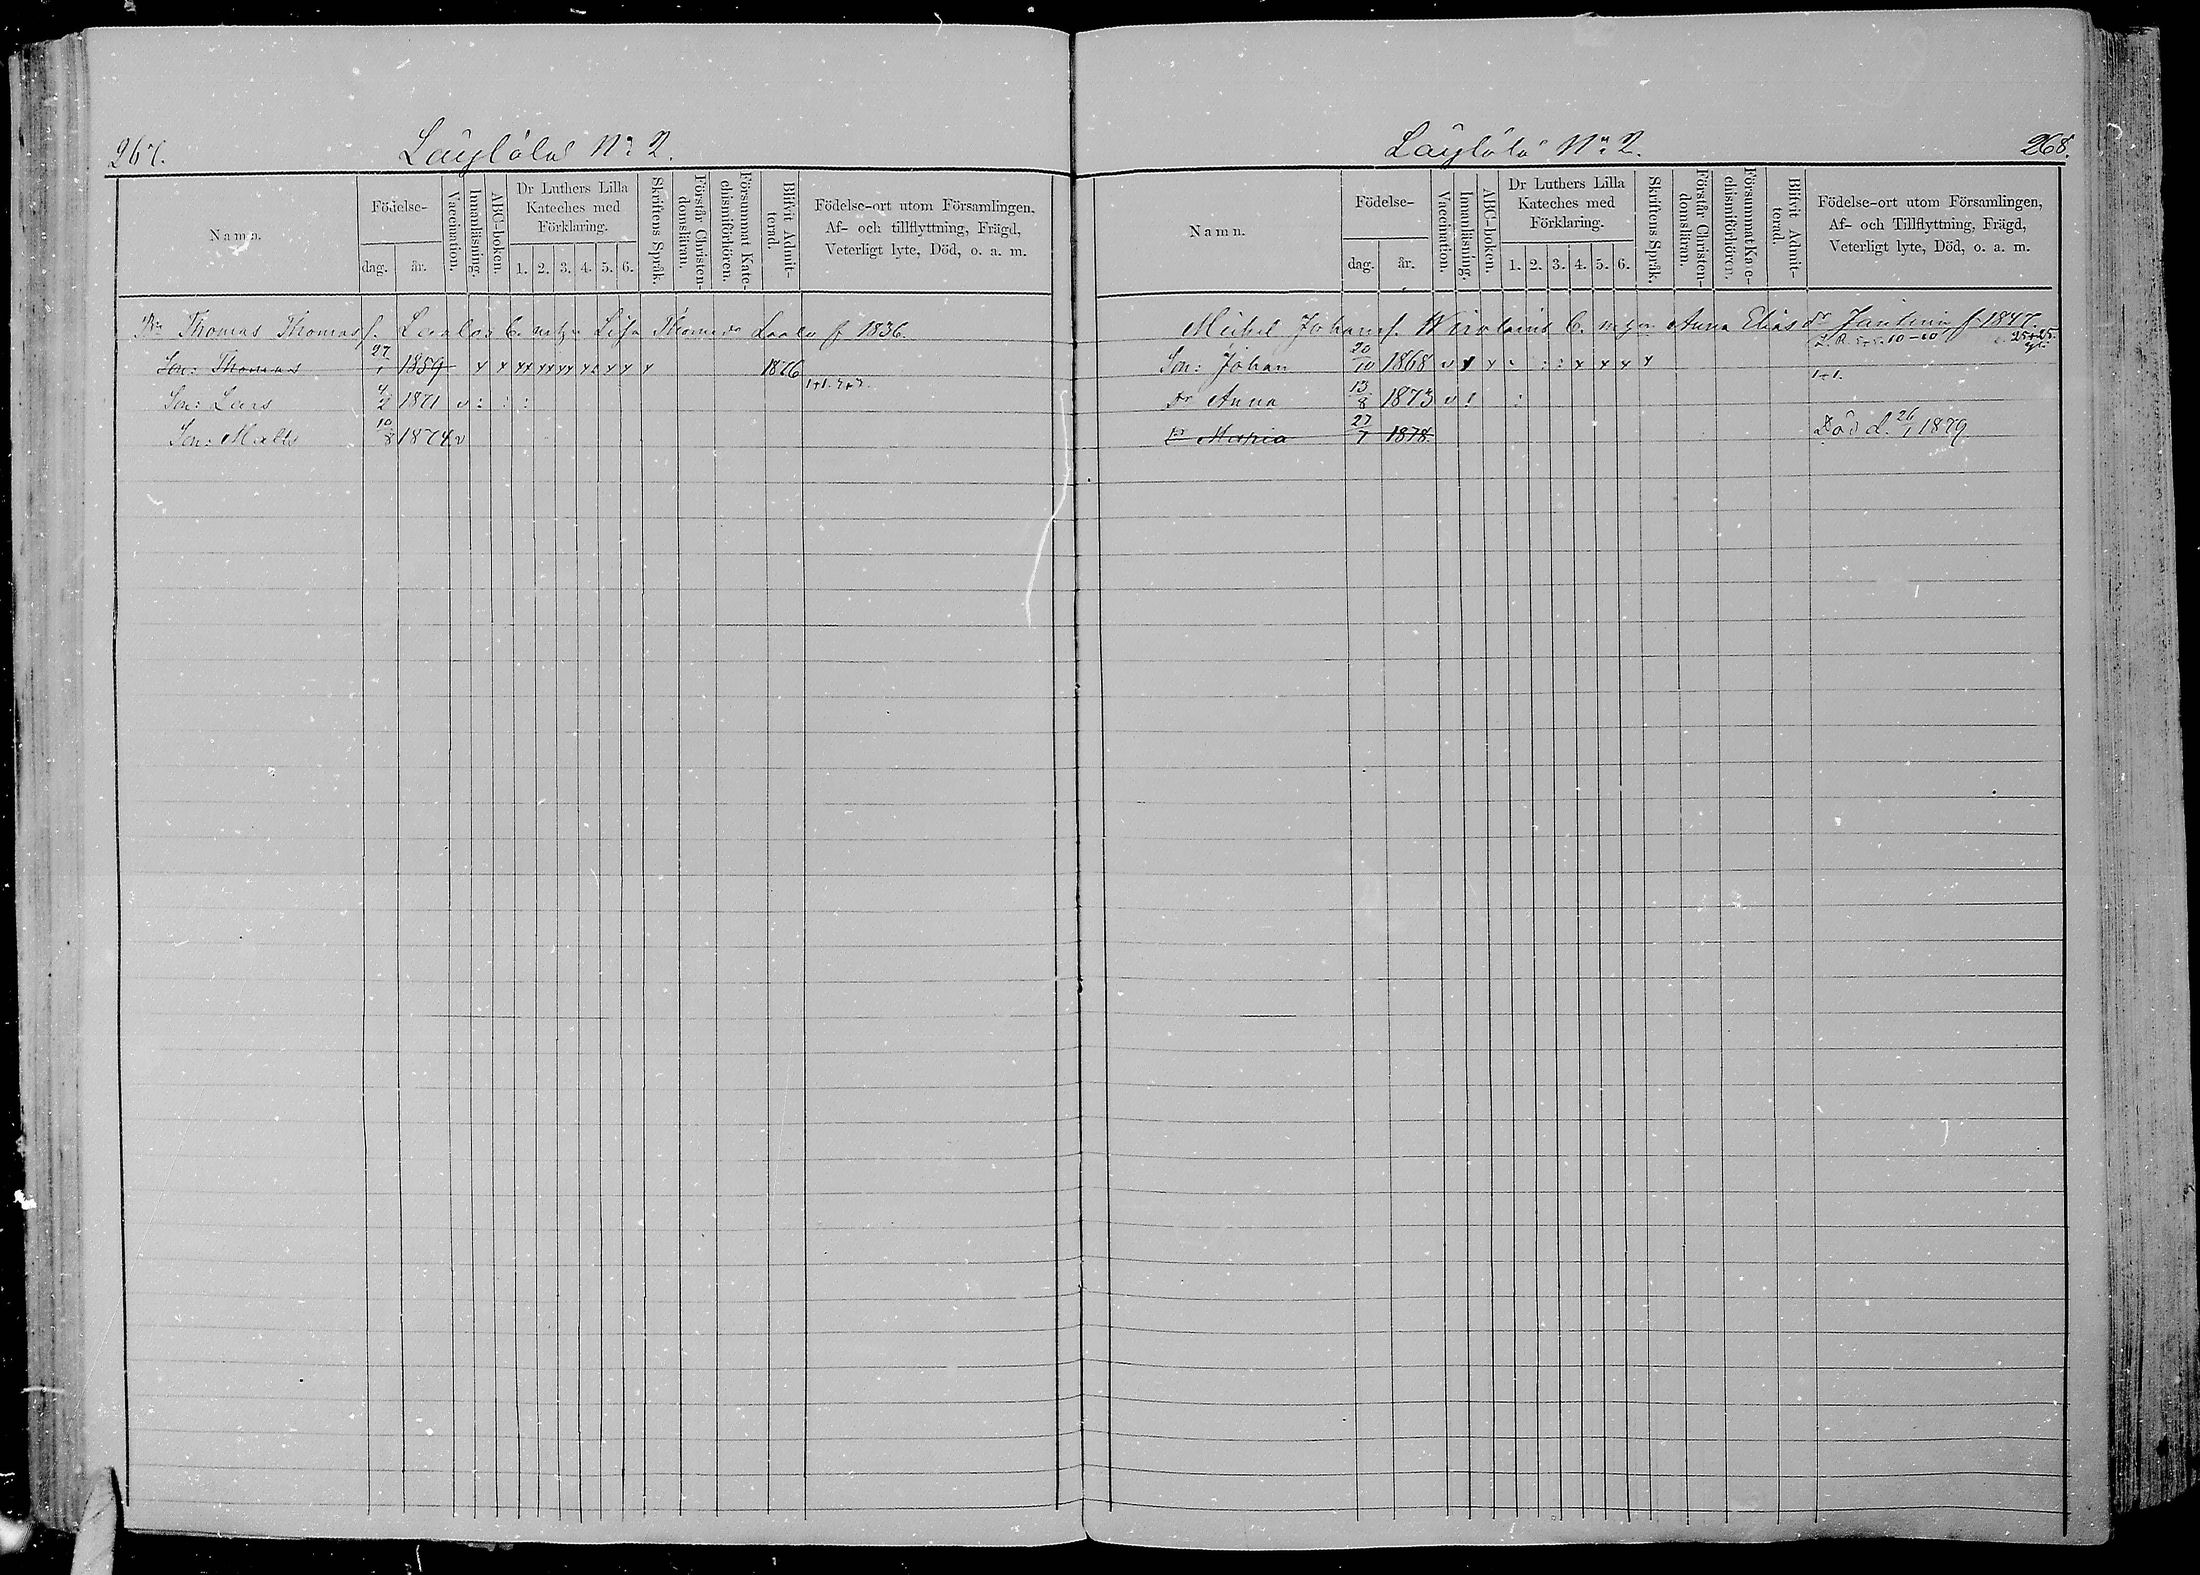 267.
N:o 2.
Namn.
Födelse-
dag.
år.
Vaccination.
Innanläsning.
ABC-boken.
Dr Luthers Lilla
Kateches med
Förklaring.
1. 2. 3. 4. 5. 6.
Skriftens Språk.
Förstår Christen-
domsläran.
Försummat Kate-
chismiförhören.
Blifvit Admit-
terad.
Födelse-ort utom Församlingen,
Af- och tillflyttning, Frägd,
Veterligt lyte, Död, o. a. m.
Thomas Thomasf. Lisa Thomasdr f 1836.
Son: Thomas 27/1 1859 x x xx xx xx x x x x 1876
Son: Lars 4/2 1871 v : : :
Son: Matts 10/8 1874 v
N:o 2.
268.
Namn.
Födelse-
dag.
år.
Vaccination.
Innanläsning.
ABC-boken.
Dr Luthers Lilla
Kateches med
Förklaring.
1. 2. 3. 4. 5. 6.
Skriftens Språk.
Förstår Christen-
domsläran.
Försummat Kate-
chismiförhören.
Blifvit Admit-
terad.
Födelse-ort utom Församlingen,
Af- och Tillflyttning, Frägd,
Veterligt lyte, Död, o. a. m.
Michel Johansf. Anna Eliasdr f 1847.
Son: Johan 20/10 1868 v x x : : : x x x x
Dr Anna 13/8 1873 v ! :
Dr Maria 27/7 1878 Död d. 26/1 1879